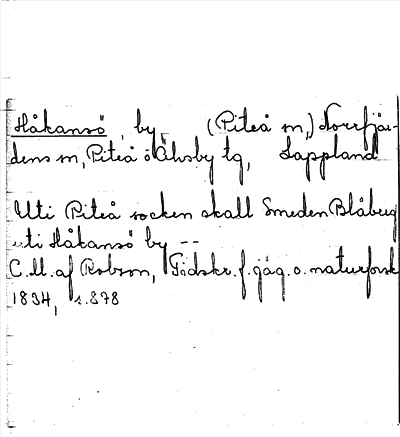 Håkansö, by, (Piteå sn,) Norrfjär-
dens sn, Piteå o Älvsby tg, Lappland
Uti Piteå socken skall Smeden Blåberg
uti Håkansö by --
C.U. af Robson, Tidskr. f. jäg. o. naturforsk
1834, s. 878